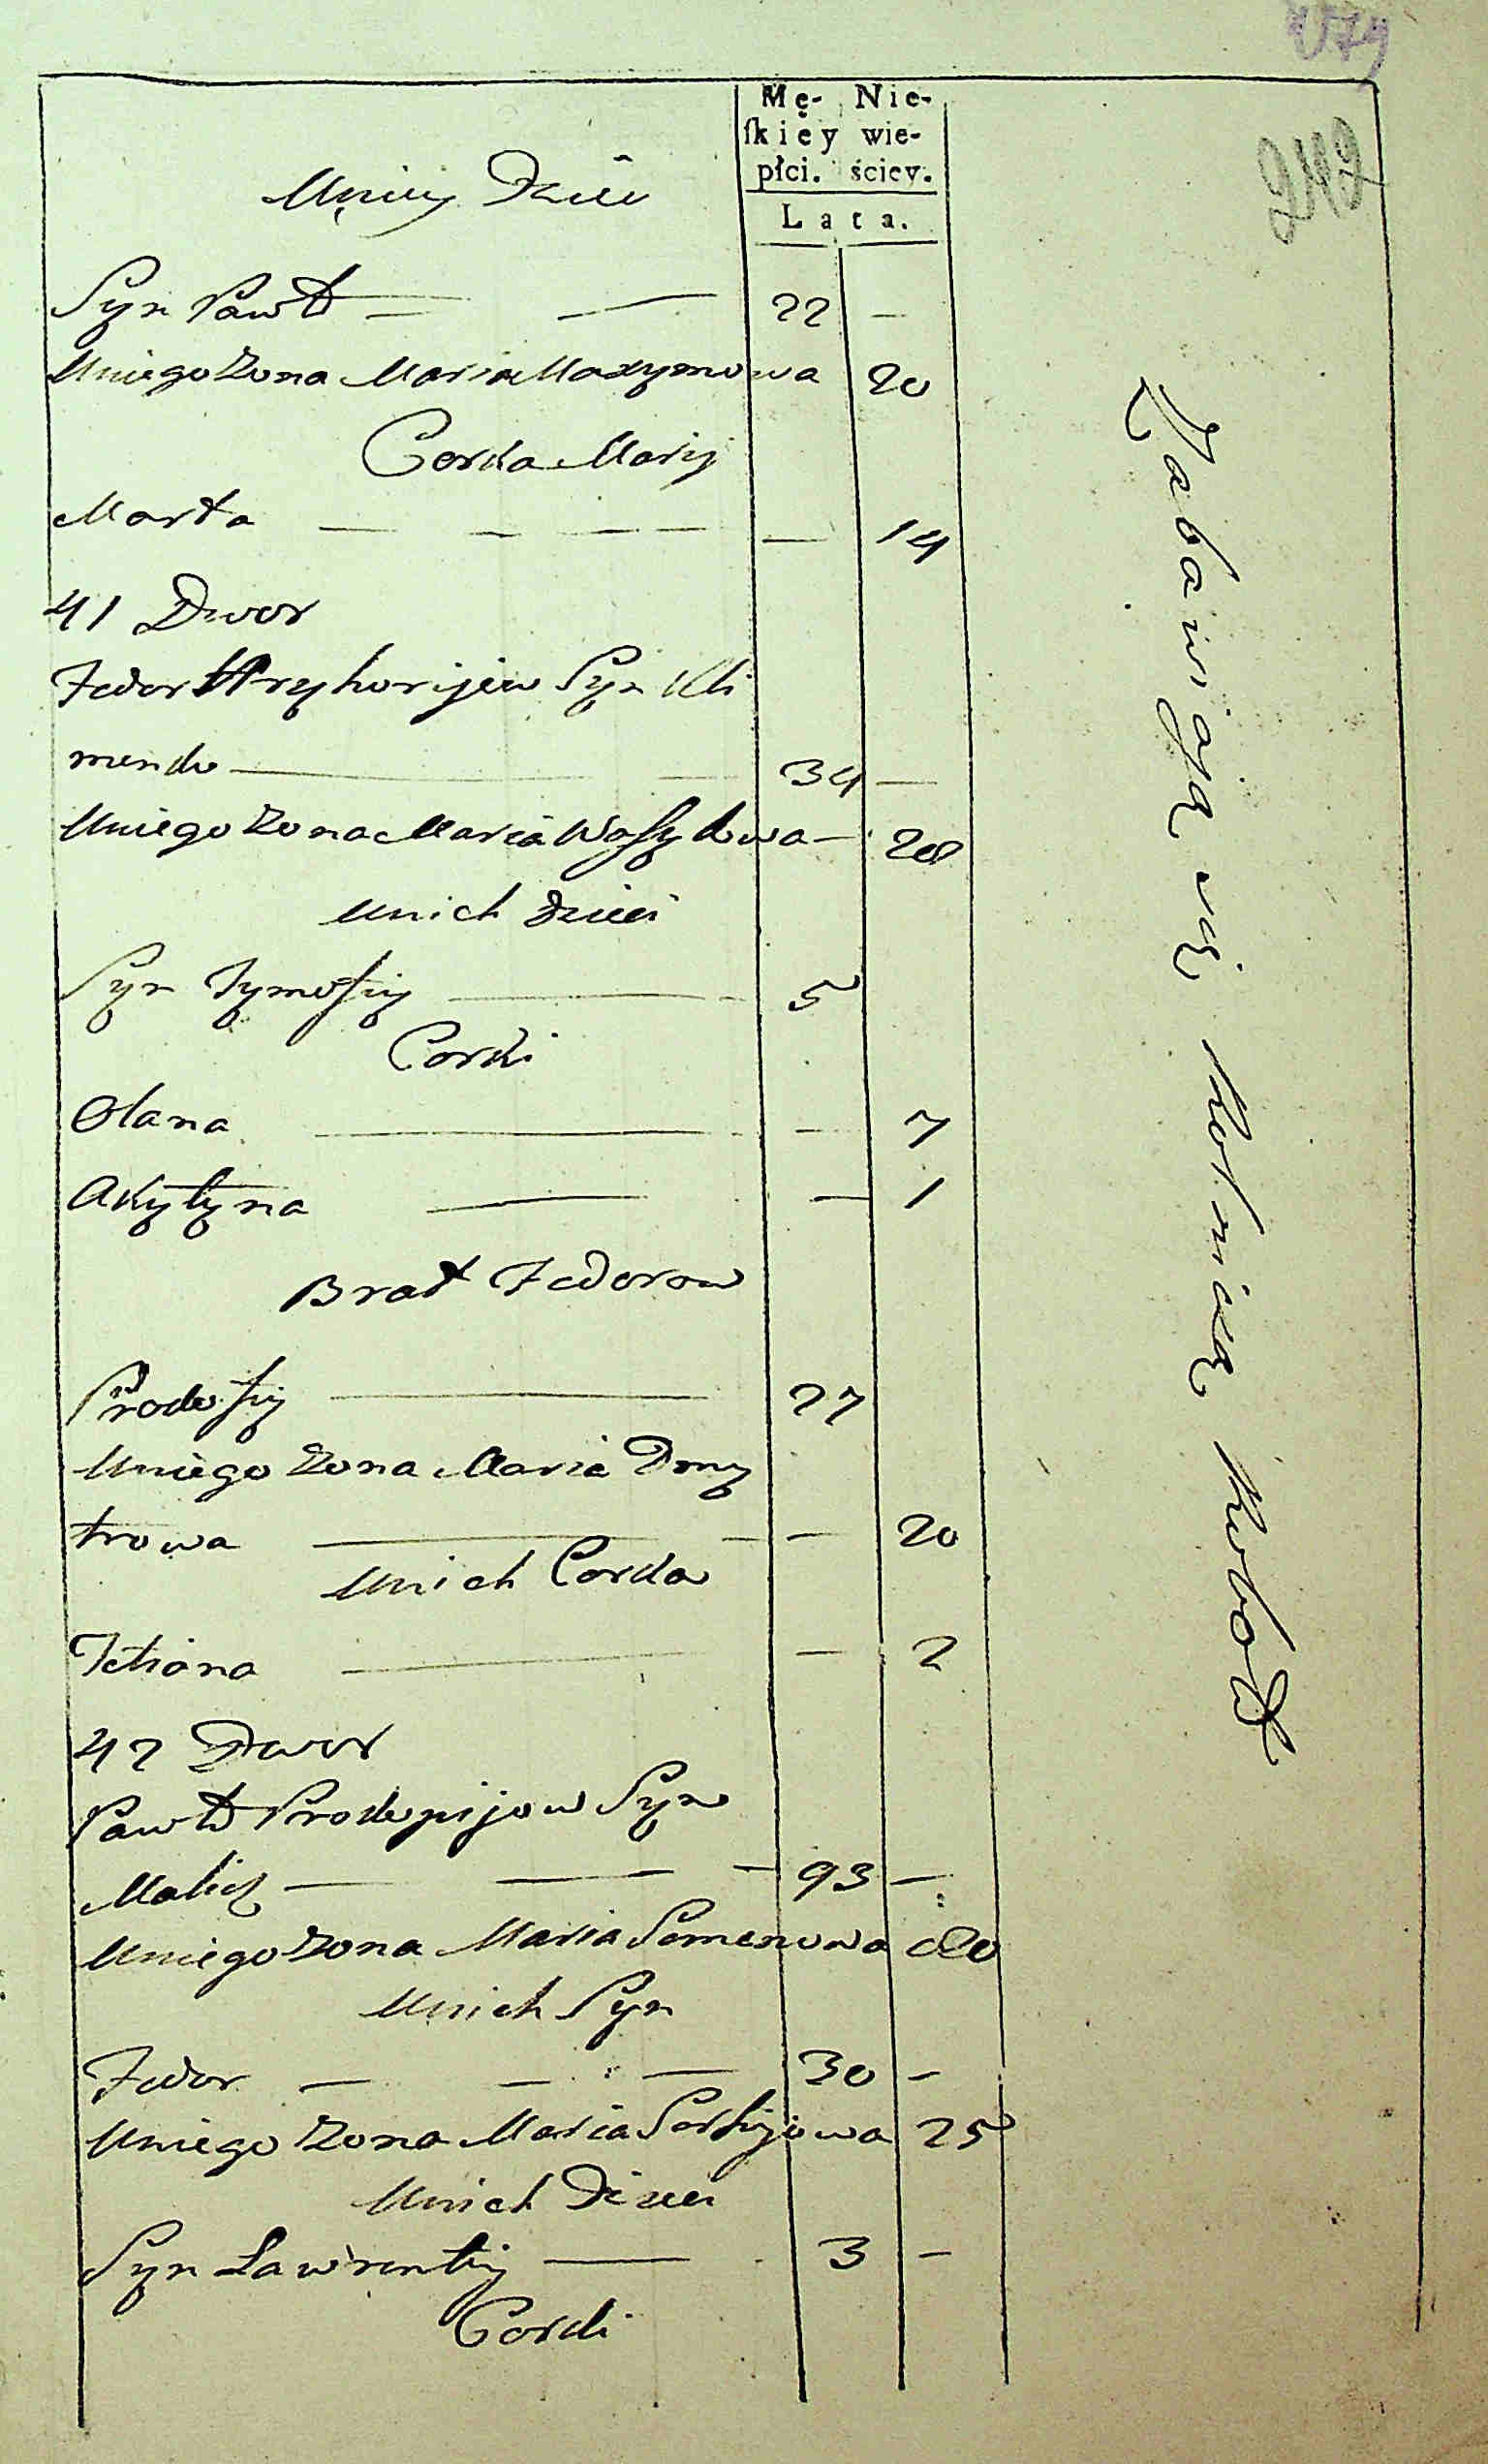 249
Mę- Nie-
ſkiey wie-
płci. ściey.
Lata.
Uniey Dzieci
Syn Pawło — — 22 —
Uniego Zona Maria Maxymowa 20
Corka Mariy
Marta — — — — — 14
41 Dwor
Fedor Hryhorijew Syn Kli
menko — — 34 —
Uniego Zona Maria Wasylowa — 28
Unich Dzieci
Syn Tymofiy — 5
Corki
Olana — — 7
Akylyna — — 1
Brat Fedorow
Prokofiy — 27
Uniego Zona Maria Dmy
trowa — — — 20
Unich Corka
Tetiana — — 2
42 Dwor
Pawło Prokopijow Syn
— — — 93 —
Uniego Zona Maria Semenowa 80
Unich Syn
Fedor — — — 30 —
Uniego Zona Maria Serhijowa 25
Unich Dzieci
Syn Lawrentiy — 3 —
Corki
Zabawiają się Rolniczą Robotą